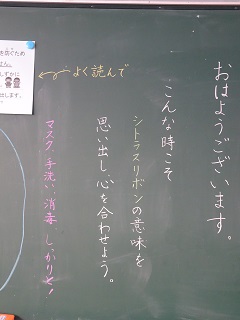 おはようございます。
こんな時こそ
シトラスリボンの意味を
思い出し、心を合わせよう。
マスク、手洗い、消毒 しっかりと!
よく読んで
を防ぐため